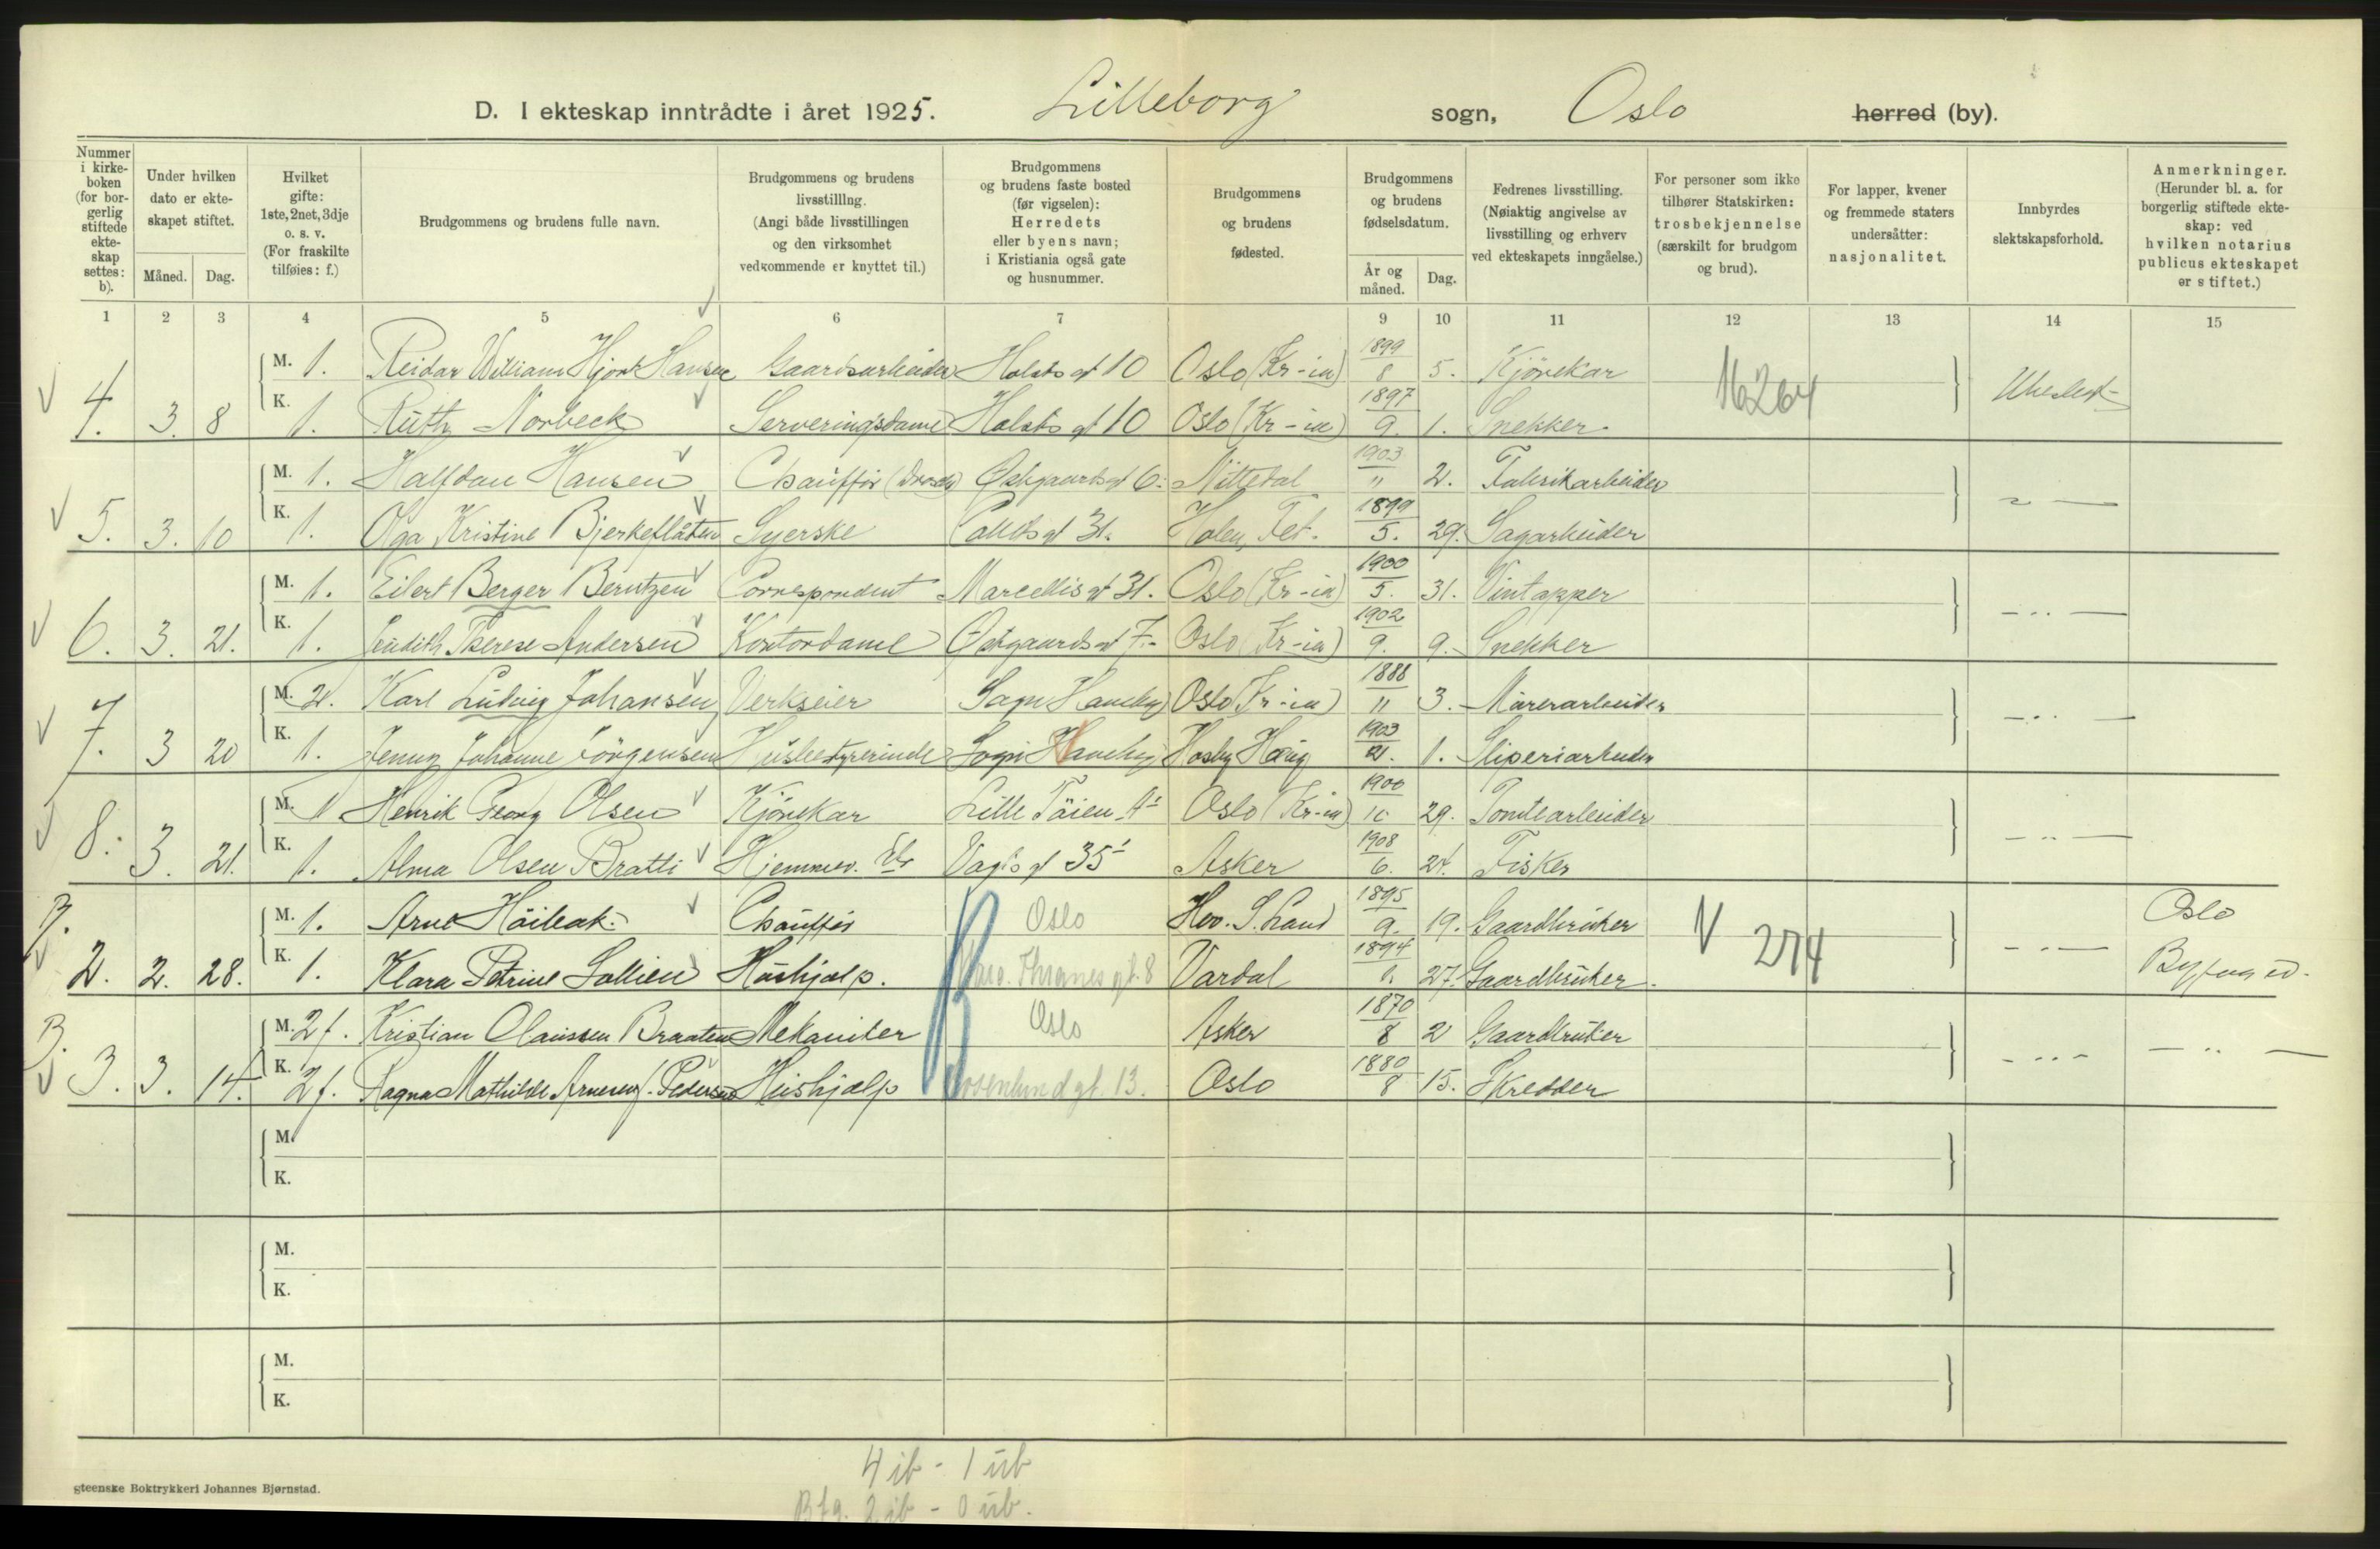 D. I ekteskap inntrådte i året 1925. Lilleborg sogn, Oslo herred (by).
Nummer i kirke-boken (for bor-gerlig stiftede ekte-skap settes: b).
Under hvilken dato er ekte-skapet stiftet.
Måned. Dag.
Hvilket gifte: 1ste, 2net, 3dje o. s. v. (For fraskilte tilføies: f.)
Brudgommens og brudens fulle navn.
Brudgommens og brudens livsstilling. (Angi både livsstillingen og den virksomhet vedkommende er knyttet til.)
Brudgommens og brudens faste bosted (før vigselen): Herredets eller byens navn; i Kristiania også gate og husnummer.
Brudgommens og brudens fødested.
Brudgommens og brudens fødselsdatum.
År og måned. Dag.
Fedrenes livsstilling. (Nøiaktig angivelse av livsstilling og erhverv ved ekteskapets inngåelse.)
For personer som ikke tilhører Statskirken: trosbekjennelse (særskilt for brudgom og brud).
For lapper, kvener og fremmede staters undersåtter: nasjonalitet.
Innbyrdes slektskapsforhold.
Anmerkninger. (Herunder bl. a. for borgerlig stiftede ekte-skap: ved hvilken notarius publicus ekteskapet er stiftet.)
1 2 3 4 5 6 7 9 10 11 12 13 14 15
M. 1. Reidar William Hjort Hansen Gaardsarbeider Holsts gt 10 Oslo (Kr-ia) 1899 8 5. Kjörekar
4. 3. 8 K. 1. Ruth Norbeck Serveringsdame Holsts gt 10 Oslo (Kr-ia) 1897 9. 1. Snekker. 16264
M. 1. Halfdan Hansen Chaufför (Drosche) Østgaardsgt 6. Nittedal 1903 11 2. Fabrikarbeider
5. 3. 10 K. 1. Olga Kristine Bjerkeflåten Syerske gt 31. Holen, Fet. 1899 5. 29. Sagarbeider
M. 1. Eilert Berger Berntzen Correspondent Marcellis gt 31. Oslo (Kr-ia) 1900 5. 31. Vintapper
6. 3. 21. K. 1. Judith Therese Andersen Kontordame Østgaards gt 7. Oslo (Kr-ia) 1902 9. 9. Snekker
M. 2. Karl Ludvig Johansen Verkseier Sagn Haveby Oslo (Kr-ia) 1888 11 3. Murerarbeider
7. 3 20 K. 1. Jenny Johanne Jörgensen Husbestyrerinde Sogn Haveby Hosby 1903 1. Sliperiarbeider
M. 1 Henrik Georg Olsen Kjörekar Lille Töien Oslo (Kr-ia) 1900 10 29. Tomtearbeider
8. 3. 21. K. 1. Alma Olsen Bratli Hjemmev. gt 35 Asker 1908 6. 24. Fisker
B. M. 1. Arne Häibak. Chaufför Oslo Hov. S. Land 1895 9. 19. Gaardbruker V Oslo
2. 2. 28. K. 1. Klara Petrine Sollien Hushjælp. Thranes gt. 8 Vardal 1894 1. 27. Gaardbruker. 274 Byfoged.
B. M. 2 f. Kristian Olaussen Braaten Mekaniker Oslo Asker 1870 8 2 Gaardbruker
3. 3. 14. K. 2 f. Ragna Mathilde Arnesen f. Pedersen Hushjælp Rosenlundgt. 13. Oslo 1880 8 15. Skredder
M.
K.
M.
K.
M.
K.
4 ib - 1 ub
Bfg. 2 ib - 0 ub.
gteenske Boktrykkeri Johannes Bjørnstad.